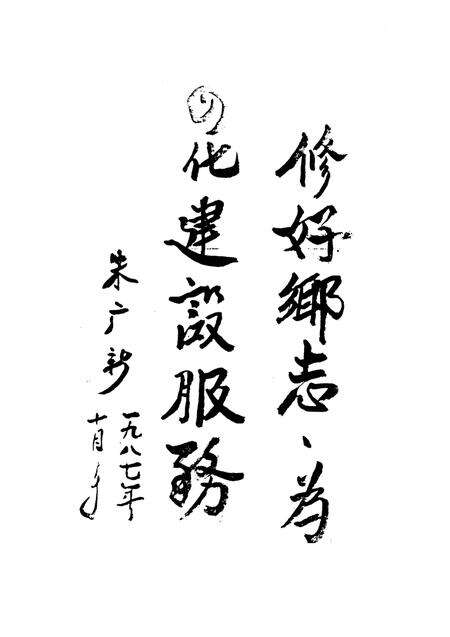 修好鄉志、為
四化建設服務
朱广新
一九八七年
十月